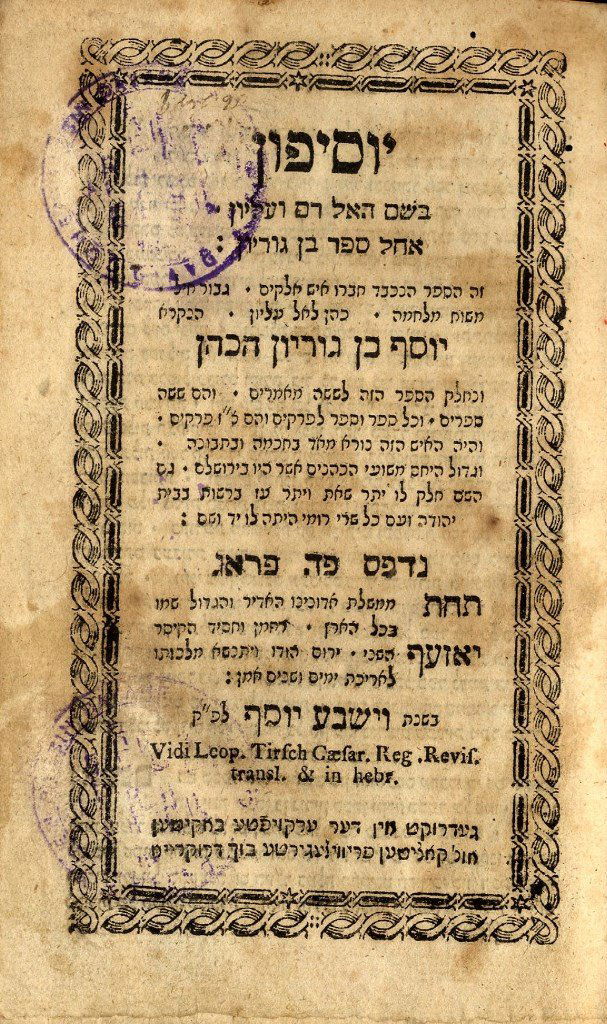 יוסיפון
בשם האל רם ועליון ·
אחל ספר בן גוריון :
זה הספר הנכבד חברו איש אלקים · גבור חיל
משוח מלחמה · כהן לאל עליון · הנקרא
יוסף בן גוריון הכהן
ונחלק הספר הזה לששה מאמרים · והם ששה
ספרים · וכל ספר וספר לפרקים והם פרקים ·
והיה האיש הזה נורא מאד בחכמה ובתבונה ·
וגדול היחס משועי הכהנים אשר היו בירושלם · גם
השם חלק לו יתר שאת ויתר עז ברשות בבית
יהודה ועם כל שרי רומי היתה לו יד ושם :
נדפס פה פראג
תחת ממשלת אדונינו האדיר והגדול שמו
בכל הארץ · רחמן וחסיד הקיסר
יאזעף השני · ירום הודו ויתנשא מלכותו
לאריכת ימים ושנים אמן :
בשנת וישבע יוסף לפ״ק
Vidi Leop. Tirsch Cæsar. Reg .Revis.
transl. & in hebr.
געדרוקט אין דער ערקויפטע באקיטשן
אול קאליטשן פריווילעגירטע בוך דרוקרייא